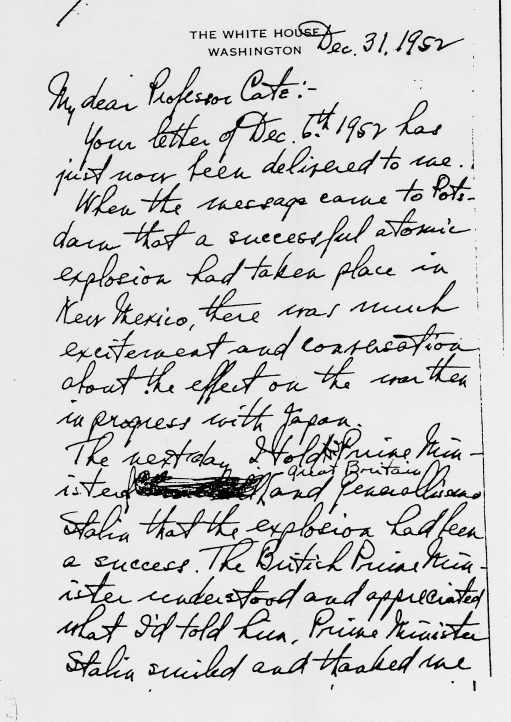 THE WHITE HOUSE
WASHINGTON
Dec. 31, 1952
My dear Professor Cate:-
Your letter of Dec. 6th 1952 has
just now been delivered to me.
When the message came to Pots-
dam that a successful atomic
explosion had taken place in
New Mexico, there was much
excitement and conversation
about the effect on the war then
in progress with Japan.
The next day I told the Prime Min-
ister of Great Britain and Generalissimo
Stalin that the explosion had been
a success. The British Prime Min-
ister understood and appreciated
what I'd told him. Prime Minister
Stalin smiled and thanked me